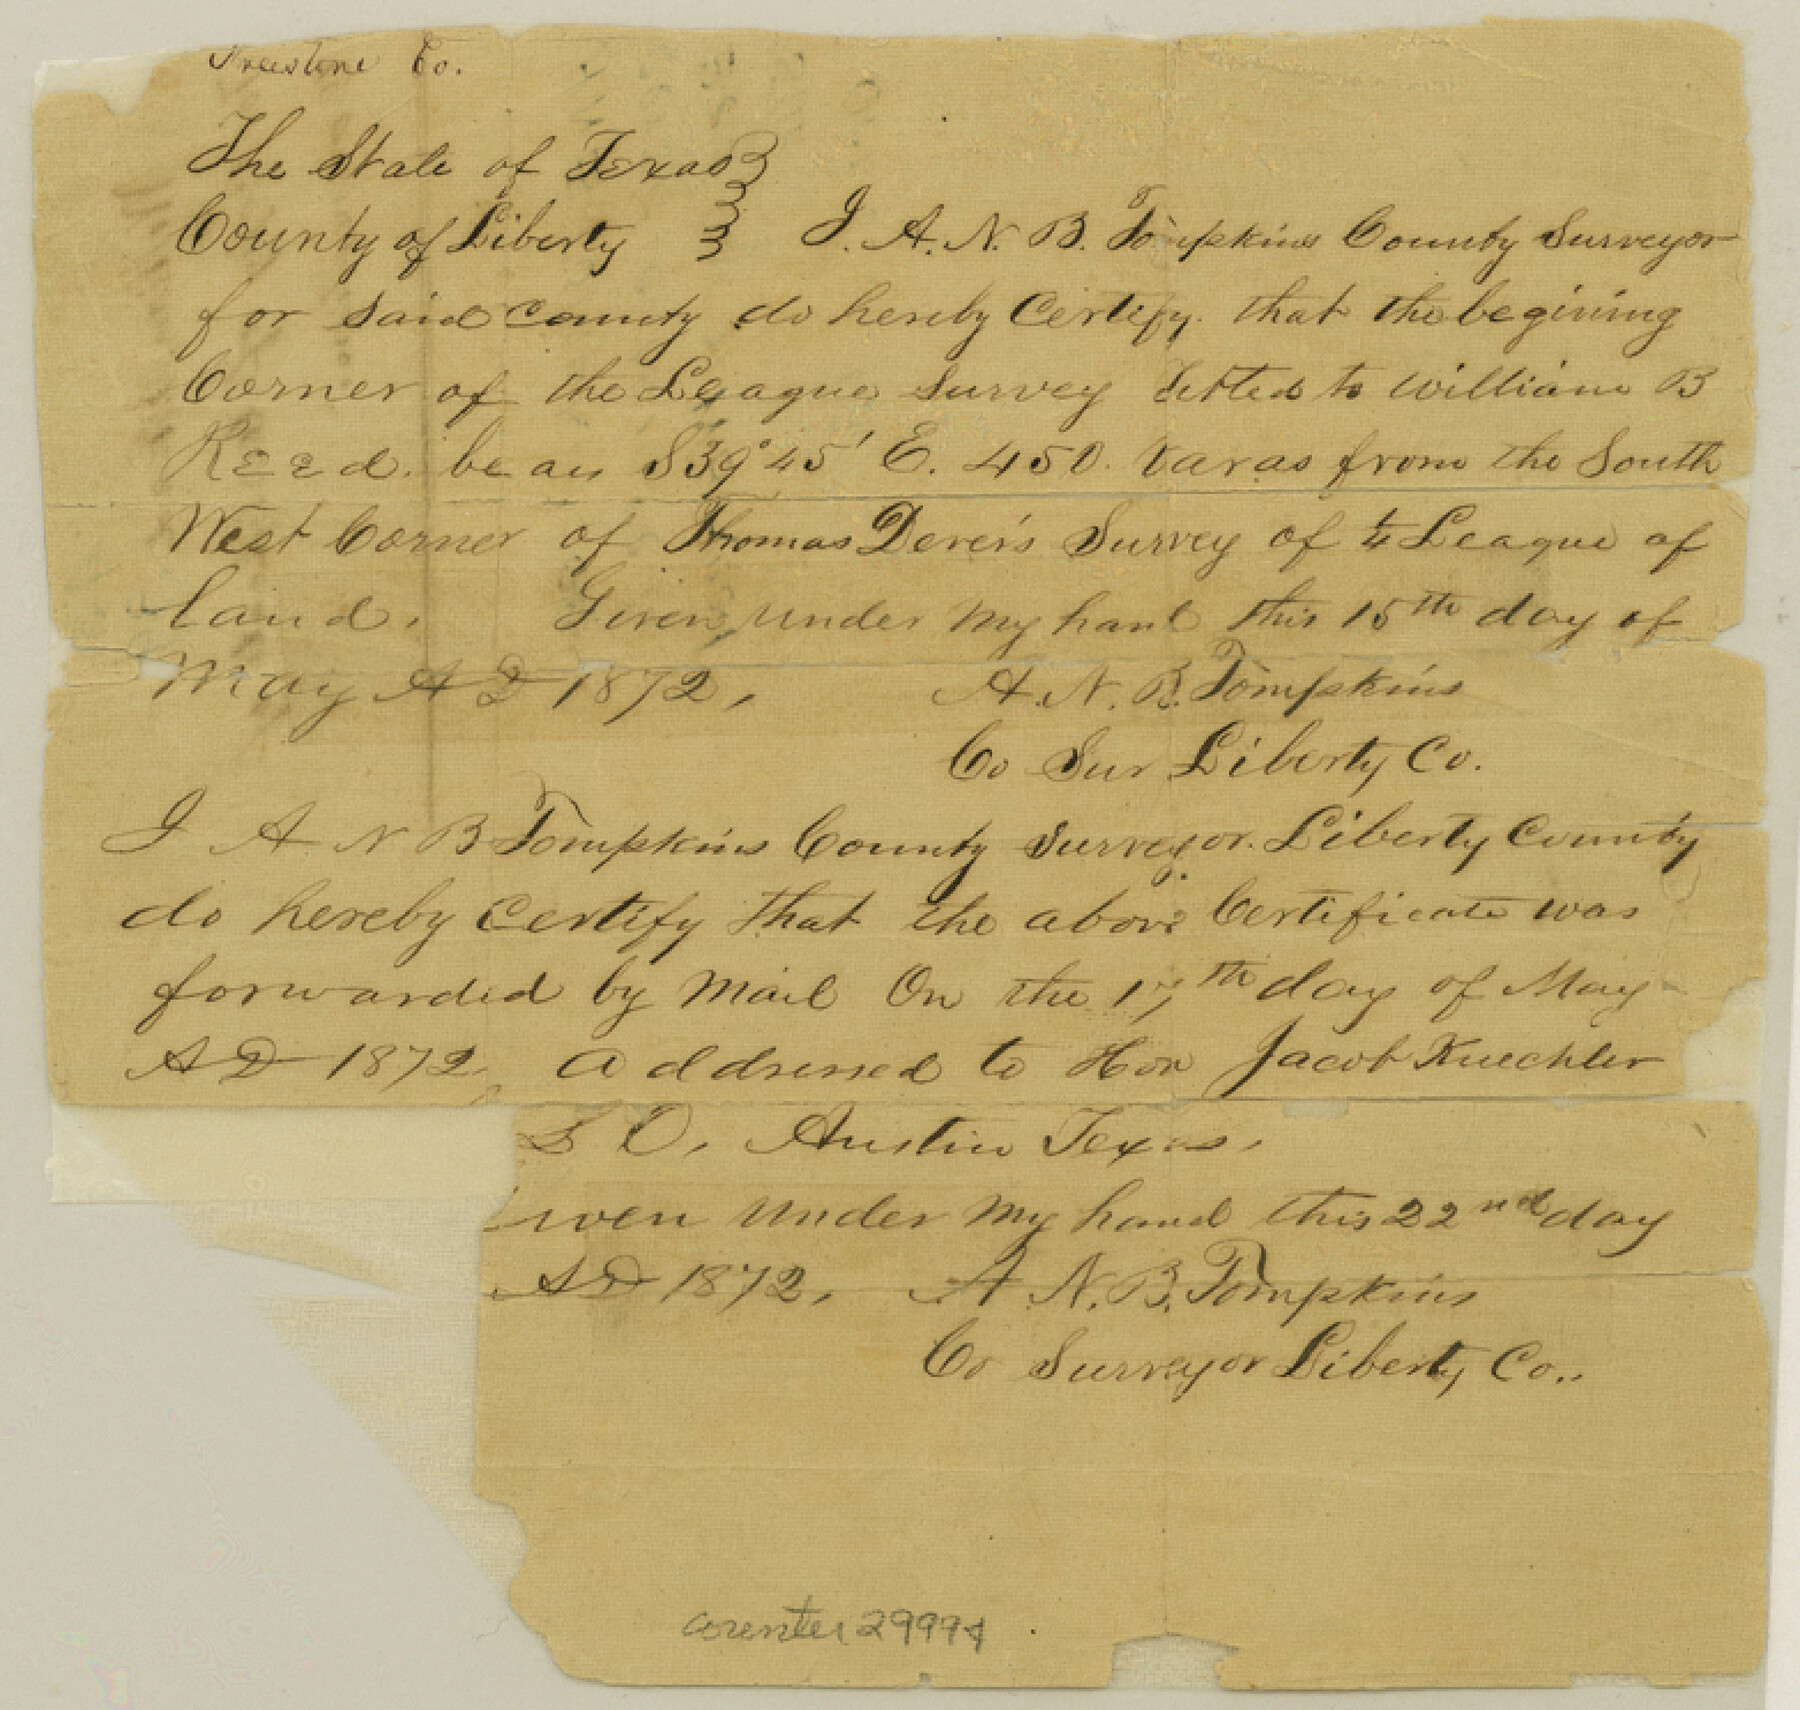 Freestone Co.
The State of Texas
County of Liberty I. A. N. B. Tompkins County Surveyor
for said county do hereby Certify. that the begining
Corner of the League Survey titled to William B
Reed. bears S39°45' E. 450. varas from the South
West Corner of Thomas Dever's Survey of 1/4 League of
land. Given under my hand this 15th day of
May AD 1872, A. N. B. Tompkins
Co Sur Liberty Co.
I A N B Tompkins County Surveyor. Liberty County
do hereby Certify that the above Certificate was
forwarded by mail On the 17th day of May
AD 1872 addressed to Hon Jacob Kuechler
L O, Austin Texas,
iven under my hand this 22nd day
AD 1872, A N. B. Tompkins
Co Surveyor Liberty Co..
counter 29994